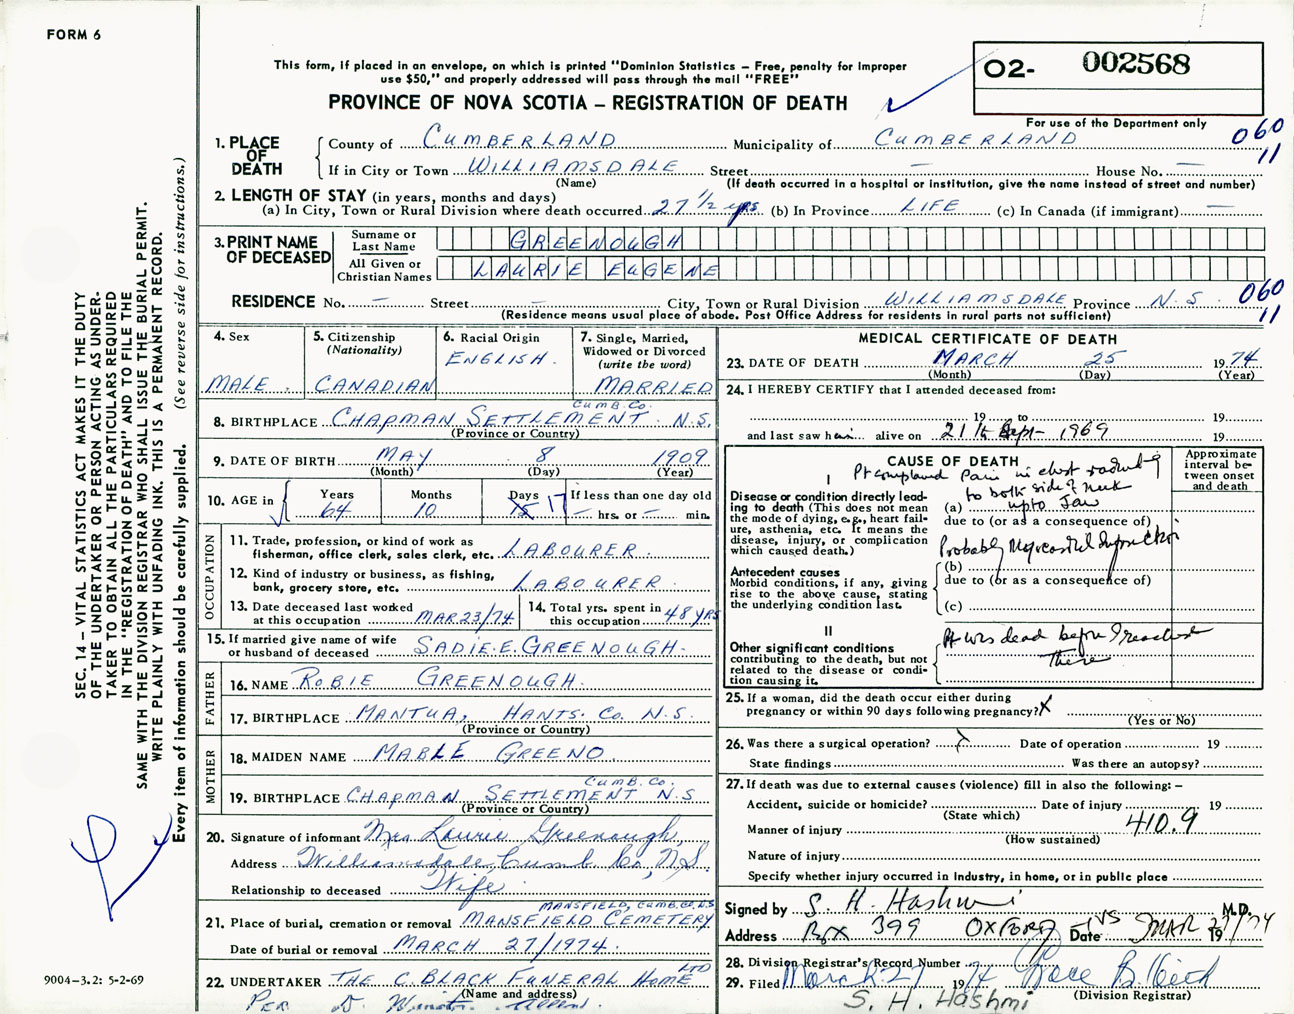 FORM 6
This form, if placed in an envelope, on which is printed "Dominion Statistics – Free, penalty for improper
use $50," and properly addressed will pass through the mail "FREE"
PROVINCE OF NOVA SCOTIA – REGISTRATION OF DEATH
02- 002568
For use of the Department only
060
11
1. PLACE OF DEATH
County of CUMBERLAND Municipality of CUMBERLAND
If in City or Town WILLIAMSDALE Street — House No. —
(Name) (If death occurred in a hospital or institution, give the name instead of street and number)
2. LENGTH OF STAY (in years, months and days)
(a) In City, Town or Rural Division where death occurred 27 1/2 yrs (b) In Province LIFE (c) In Canada (if immigrant) —
3. PRINT NAME OF DECEASED
Surname or Last Name GREENOUGH
All Given or Christian Names LAURIE EUGENE
RESIDENCE No. — Street — City, Town or Rural Division WILLIAMSDALE Province N.S. 060
(Residence means usual place of abode. Post Office Address for residents in rural parts not sufficient) 11
4. Sex
MALE
5. Citizenship
(Nationality)
CANADIAN
6. Racial Origin
ENGLISH.
7. Single, Married,
Widowed or Divorced
(write the word)
MARRIED
8. BIRTHPLACE CHAPMAN SETTLEMENT CUMB. CO. N.S.
(Province or Country)
9. DATE OF BIRTH MAY 8 1909
(Month) (Day) (Year)
10. AGE in Years 64 Months 10 Days 15 17 If less than one day old
— hrs. or — min.
OCCUPATION
11. Trade, profession, or kind of work as
fisherman, office clerk, sales clerk, etc. LABOURER.
12. Kind of industry or business, as fishing,
bank, grocery store, etc. LABOURER.
13. Date deceased last worked
at this occupation MAR 23/74
14. Total yrs. spent in
this occupation 48 YRS
15. If married give name of wife
or husband of deceased SADIE. E. GREENOUGH.
FATHER
16. NAME ROBIE GREENOUGH.
17. BIRTHPLACE MANTUA, HANTS. CO. N.S.
(Province or Country)
MOTHER
18. MAIDEN NAME MABLE GREENO
19. BIRTHPLACE CHAPMAN SETTLEMENT CUMB. CO. N.S
(Province or Country)
20. Signature of informant Mrs. Laurie Greenough,
Address Williamsdale, Cumb Co, N.S.
Relationship to deceased Wife
21. Place of burial, cremation or removal MANSFIELD CEMETERY MANSFIELD, CUMB. CO. N.S.
Date of burial or removal MARCH 27/1974.
22. UNDERTAKER THE C. BLACK FUNERAL HOME LTD
(Name and address)
PER D.
MEDICAL CERTIFICATE OF DEATH
23. DATE OF DEATH MARCH 25 1974
(Month) (Day) (Year)
24. I HEREBY CERTIFY that I attended deceased from:
19 to 19
and last saw him alive on 21st Sept- 1969 19
CAUSE OF DEATH
Approximate interval between onset and death
I
Disease or condition directly leading to death (This does not mean the mode of dying, e.g., heart failure, asthenia, etc. It means the disease, injury, or complication which caused death.)
Pt complained Pain in chest radiating
to both side of Neck
(a) upto Jaw
due to (or as a consequence of)
Antecedent causes
Morbid conditions, if any, giving rise to the above cause, stating the underlying condition last.
Probably Myocardial Infarction
(b)
due to (or as a consequence of)
(c)
II
Other significant conditions
contributing to the death, but not related to the disease or condition causing it.
Pt was dead before I reached
there
25. If a woman, did the death occur either during
pregnancy or within 90 days following pregnancy? X
(Yes or No)
26. Was there a surgical operation? X Date of operation 19
State findings Was there an autopsy?
27. If death was due to external causes (violence) fill in also the following: –
Accident, suicide or homicide? Date of injury 19
(State which)
Manner of injury 410.9
(How sustained)
Nature of injury
Specify whether injury occurred in Industry, in home, or in public place
Signed by S. H. Hashmi M.D.
Address Box 399 OXFORD NS Date MAR 27/74 19
28. Division Registrar's Record Number
29. Filed March 27 1974 Grace B.
(Division Registrar)
S. H. Hashmi
SEC. 14 – VITAL STATISTICS ACT MAKES IT THE DUTY
OF THE UNDERTAKER OR PERSON ACTING AS UNDER-
TAKER TO OBTAIN ALL THE PARTICULARS REQUIRED
IN THE "REGISTRATION OF DEATH" AND TO FILE THE
SAME WITH THE DIVISION REGISTRAR WHO SHALL ISSUE THE BURIAL PERMIT.
WRITE PLAINLY WITH UNFADING INK. THIS IS A PERMANENT RECORD.
Every item of information should be carefully supplied. (See reverse side for instructions.)
9004–3.2: 5-2-69